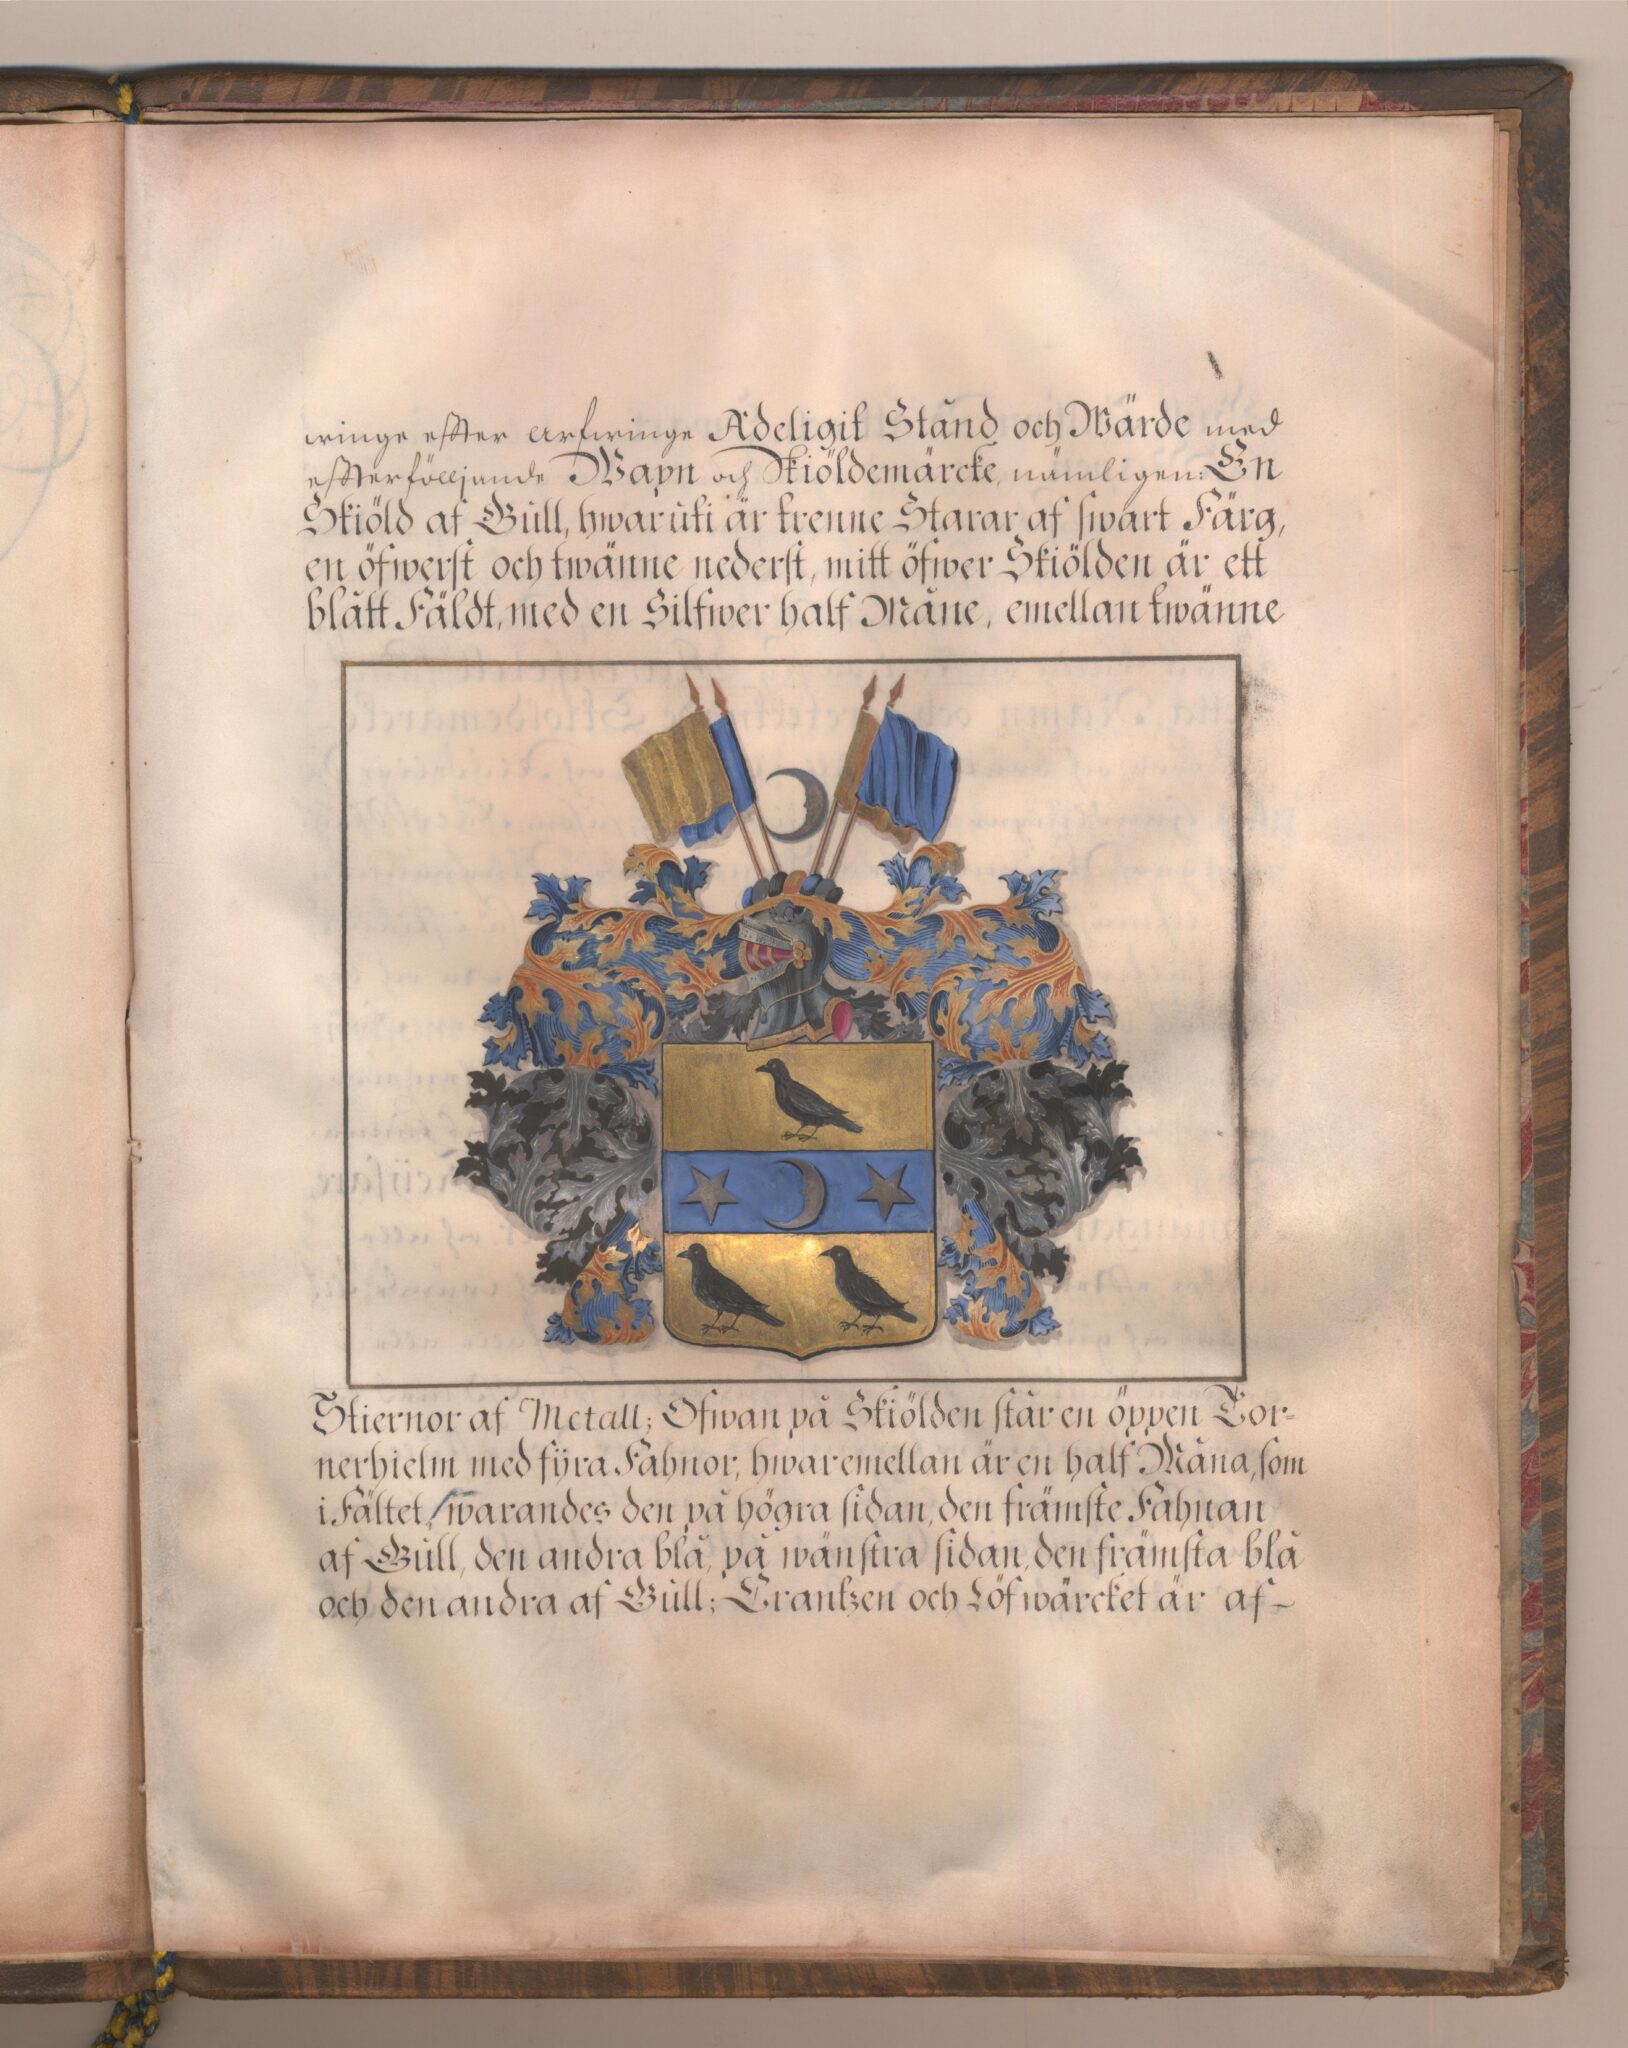 wringe effter arfwringe Adeligit Stånd och Wärde med
effterfölljande Wapn och Skiöldemärcke, nämligen: En
Skiöld af Gull, hwaruti är trenne Starar af swart Färg,
en öfwerst och twänne nederst, mitt öfwer Skiölden är ett
blått Fäldt, med en Silfwer half Måne, emellan twänne
Stiernor af Metall; Ofwan på Skiölden står en öppen Tor-
nerhielm med fÿra Fahnor, hwaremellan är en half Måna, som
i Fältet, warandes den på högra sidan, den främste Fahnan
af Gull, den andra blå, på wänstra sidan, den främsta blå
och den andra af Gull; Crantzen och Löfwärcket är af-